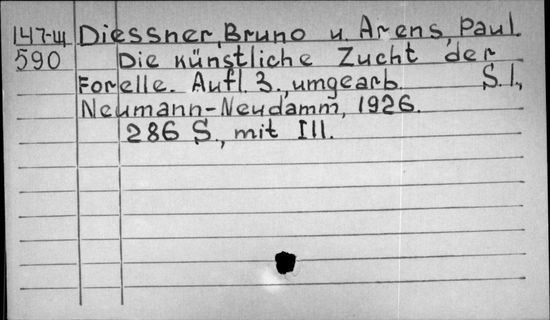 147-Ш Diessner, Bruno u. Arens, Paul.
590 Die künstliche Zucht der
Forelle. Aufl. 3., umgearb. S. l.,
Neumann-Neudamm, 1926.
286 S., mit Ill.